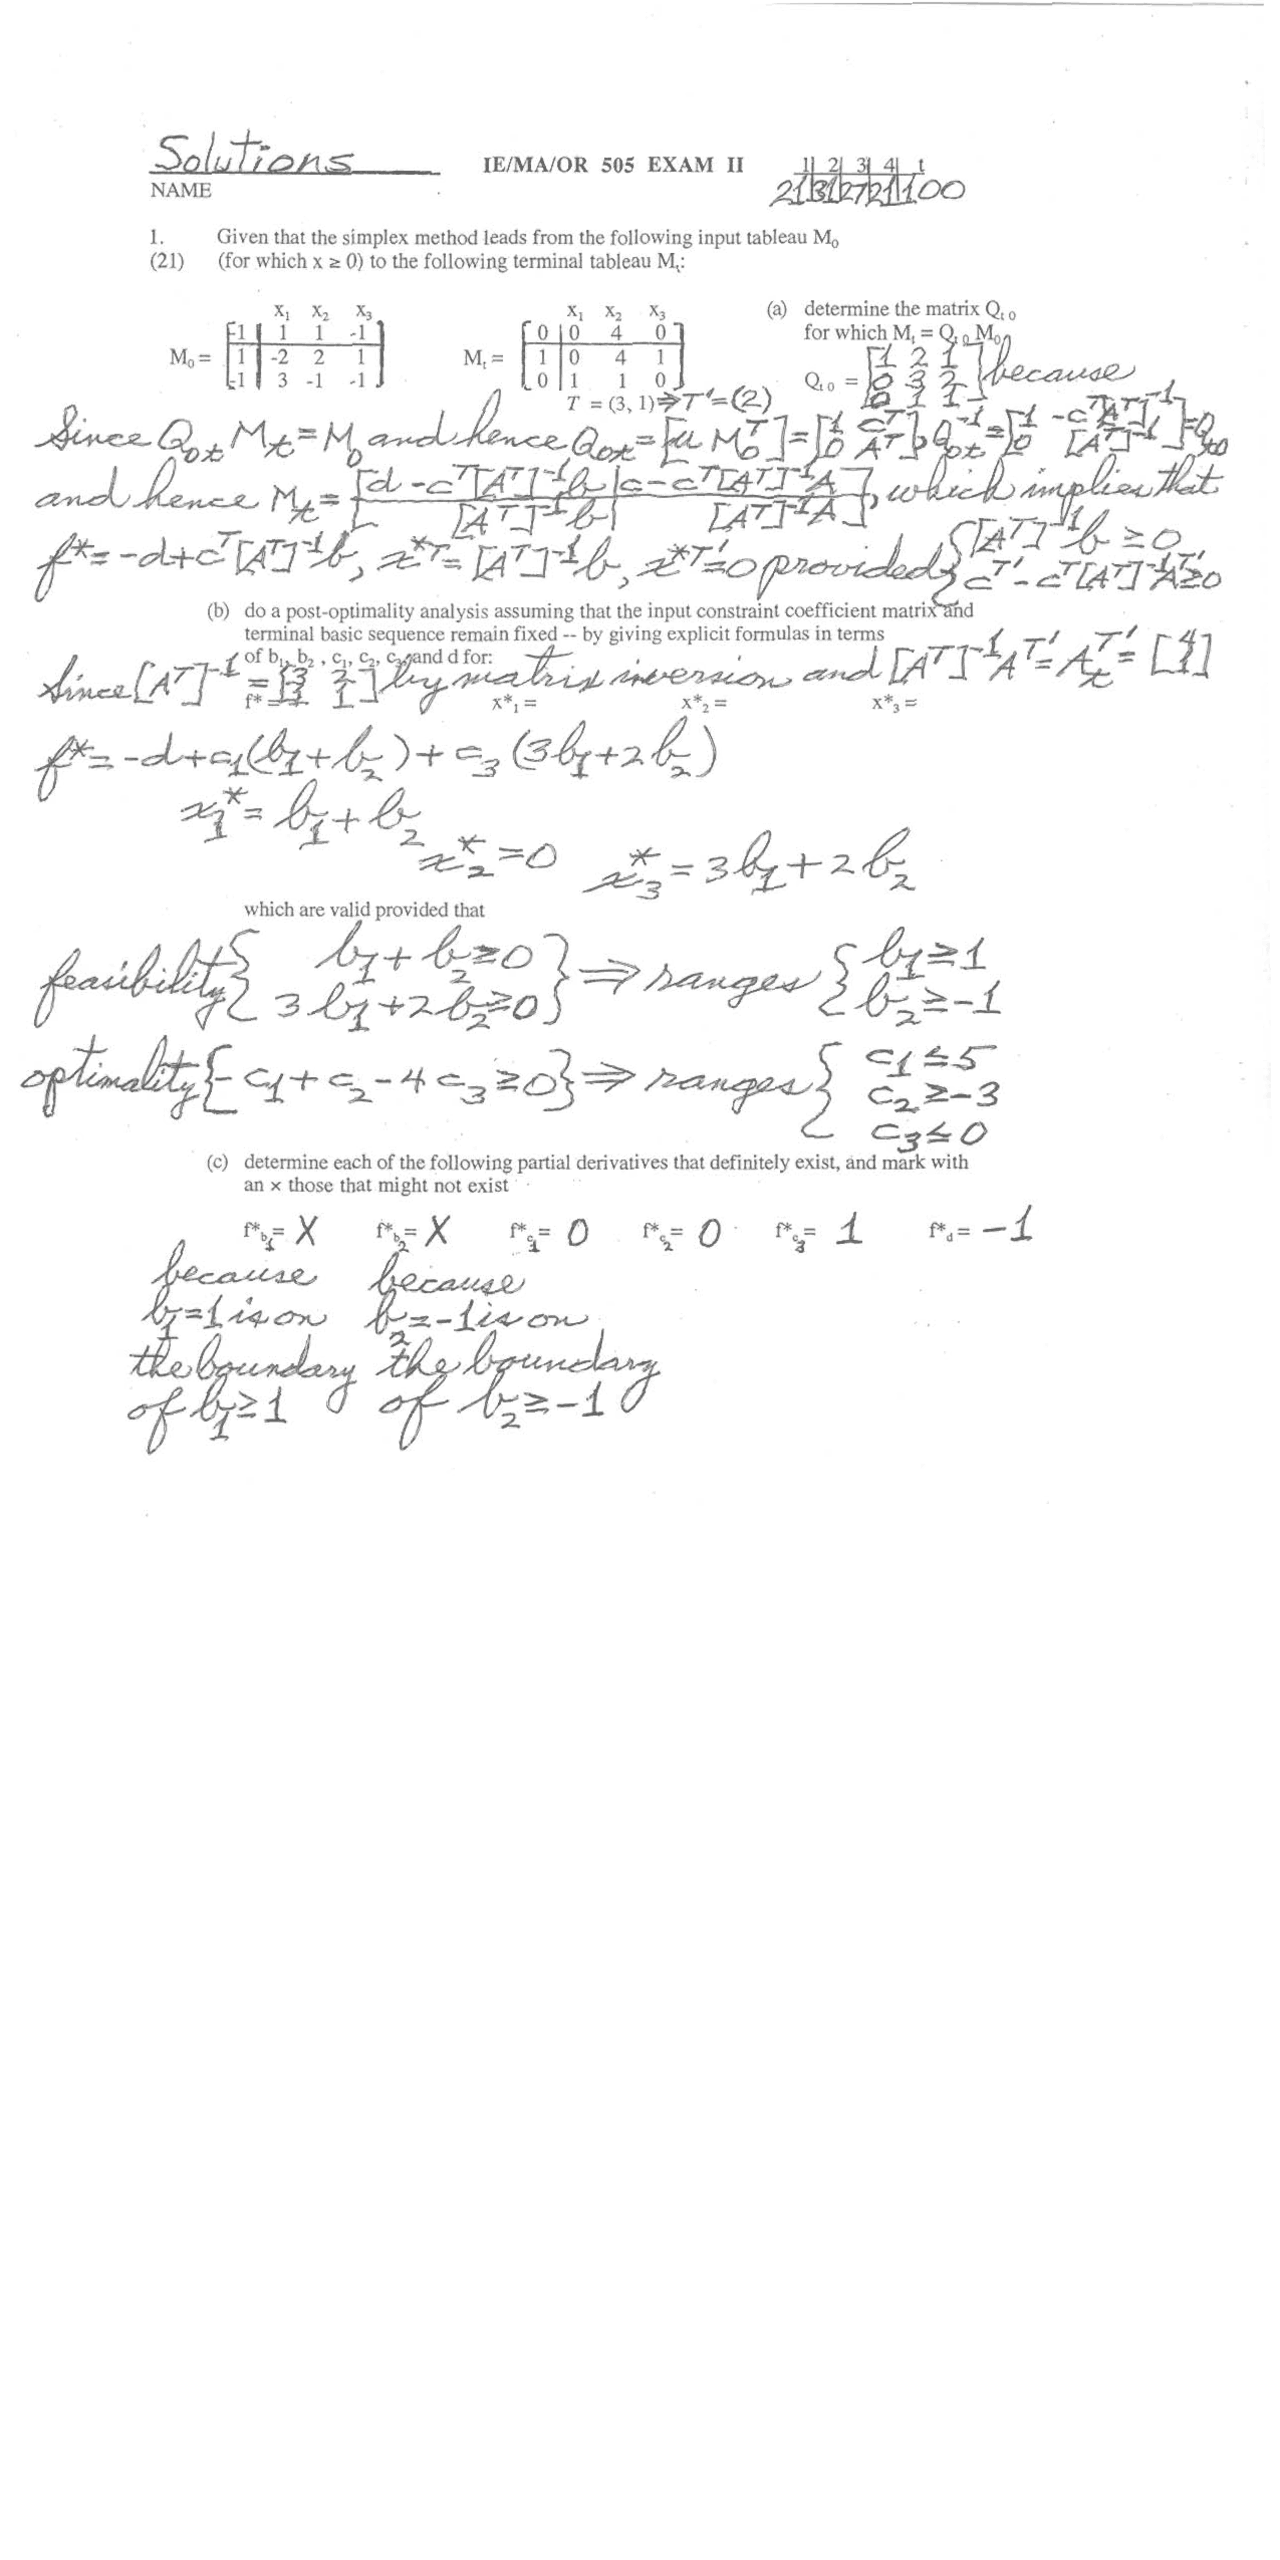 Solutions IE/MA/OR 505 EXAM II 1| 2| 3| 4| t
NAME 21|31|27|21|100
1. Given that the simplex method leads from the following input tableau M₀
(21) (for which x ≥ 0) to the following terminal tableau Mₜ:
x₁ x₂ x₃ x₁ x₂ x₃ (a) determine the matrix Qₜ₀
-1 1 1 -1 0 0 4 0 for which Mₜ = Qₜ₀ M₀
M₀ = 1 -2 2 1 Mₜ = 1 0 4 1 [1 2 1
-1 3 -1 -1 0 1 1 0 Qₜ₀ = 0 3 2 because
T = (3, 1) ⇒ T' = (2) 0 1 1]
Since Q₀ₜ Mₜ = M₀ and hence Q₀ₜ = [u M₀ᵀ] = [1 cᵀ; 0 Aᵀ], Q₀ₜ⁻¹ = [1 -cᵀ[Aᵀ]⁻¹; 0 [Aᵀ]⁻¹] = Qₜ₀
and hence Mₜ = [d - cᵀ[Aᵀ]⁻¹b | c - cᵀ[Aᵀ]⁻¹A; [Aᵀ]⁻¹b | [Aᵀ]⁻¹A], which implies that
f* = -d + cᵀ[Aᵀ]⁻¹b, x*ᵀ = [Aᵀ]⁻¹b, x*ᵀ' = 0 provided { [Aᵀ]⁻¹b ≥ 0, cᵀ' - cᵀ[Aᵀ]⁻¹Aᵀ' ≥ 0
(b) do a post-optimality analysis assuming that the input constraint coefficient matrix and
terminal basic sequence remain fixed -- by giving explicit formulas in terms
of b₁, b₂ , c₁, c₂, c₃, and d for:
Since [Aᵀ]⁻¹ = [3 2; 1 1] by matrix inversion and [Aᵀ]⁻¹Aᵀ' = Aₜᵀ' = [4; 1]
f* = x*₁ = x*₂ = x*₃ =
f* = -d + c₁(b₁ + b₂) + c₃(3b₁ + 2b₂)
x₁* = b₁ + b₂
x₂* = 0 x₃* = 3b₁ + 2b₂
which are valid provided that
feasibility { b₁ + b₂ ≥ 0 } ⇒ ranges { b₁ ≥ 1
3b₁ + 2b₂ ≥ 0 b₂ ≥ -1
optimality {- c₁ + c₂ - 4c₃ ≥ 0} ⇒ ranges { c₁ ≤ 5
c₂ ≥ -3
c₃ ≤ 0
(c) determine each of the following partial derivatives that definitely exist, and mark with
an × those that might not exist
f*b₁ = X f*b₂ = X f*c₁ = 0 f*c₂ = 0 f*c₃ = 1 f*d = -1
because because
b₁ = 1 is on b₂ = -1 is on
the boundary the boundary
of b₁ ≥ 1 of b₂ ≥ -1